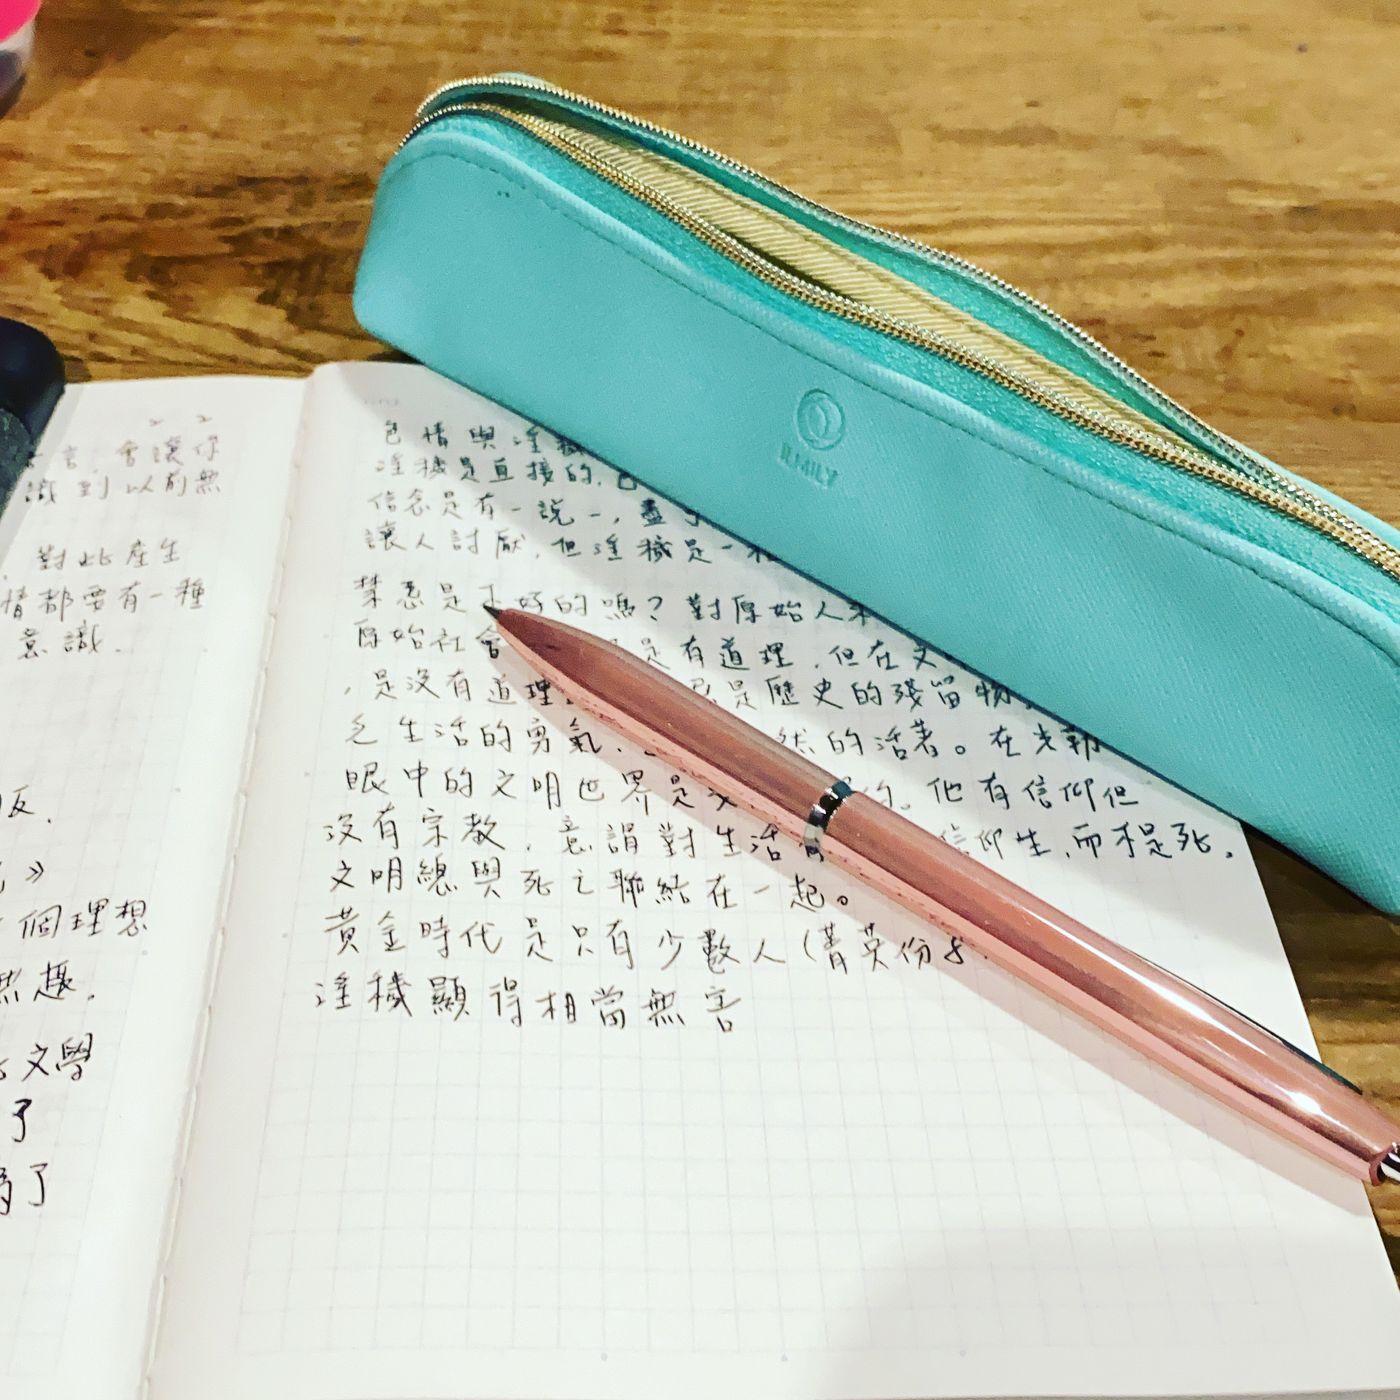 言,會讓你
識到以前無
對此產生
情都要有一種
意識.
版.
》
個理想
無趣.
文學
了
了
色情與淫穢
淫穢是直接的.
信念是有一說一,盡
讓人討厭,但淫穢是一種
禁忌是不好的嗎?對原始人來
原始社會 是有道理,但在文
,是沒有道理. 忌是歷史的殘留物.
乏生活的勇氣. 然的活著。在
眼中的文明世界是 他有信仰但
沒有宗教.意謂對生活有 信仰生,而不是死.
文明總與死亡聯結在一起。
黃金時代是只有少數人(菁英份子
淫穢顯得相當無害
ILMILY